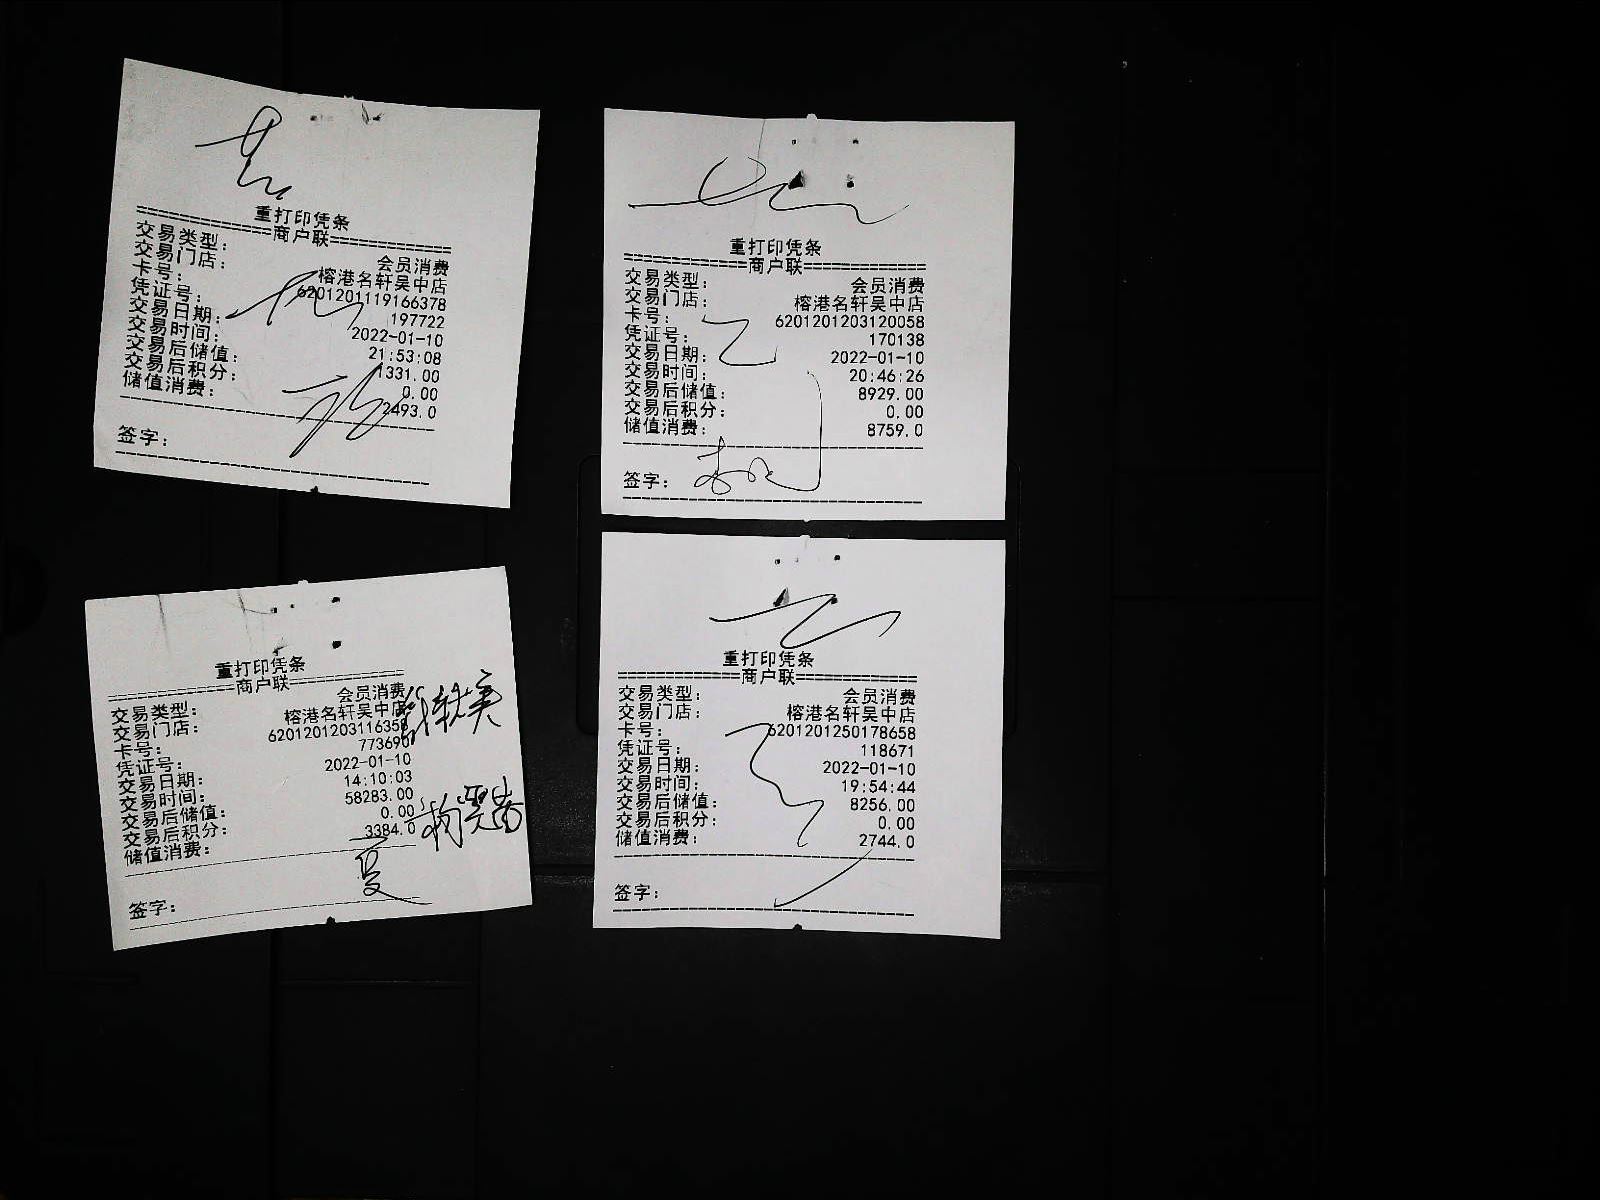 重打印凭条
============商户联============
交易类型： 会员消费
交易门店： 榕港名轩吴中店
卡号： 6201201119166378
凭证号： 197722
交易日期： 2022-01-10
交易时间： 21:53:08
交易后储值： 1331.00
交易后积分： 0.00
储值消费： 2493.0
签字：
重打印凭条
============商户联============
交易类型： 会员消费
交易门店： 榕港名轩吴中店
卡号： 6201201203120058
凭证号： 170138
交易日期： 2022-01-10
交易时间： 20:46:26
交易后储值： 8929.00
交易后积分： 0.00
储值消费： 8759.0
签字：
重打印凭条
============商户联============
交易类型： 会员消费
交易门店： 榕港名轩吴中店
卡号： 6201201203116358
凭证号： 773690
交易日期： 2022-01-10
交易时间： 14:10:03
交易后储值： 58283.00
交易后积分： 0.00
储值消费： 3384.0
签字：
重打印凭条
============商户联============
交易类型： 会员消费
交易门店： 榕港名轩吴中店
卡号： 6201201250178658
凭证号： 118671
交易日期： 2022-01-10
交易时间： 19:54:44
交易后储值： 8256.00
交易后积分： 0.00
储值消费： 2744.0
签字：